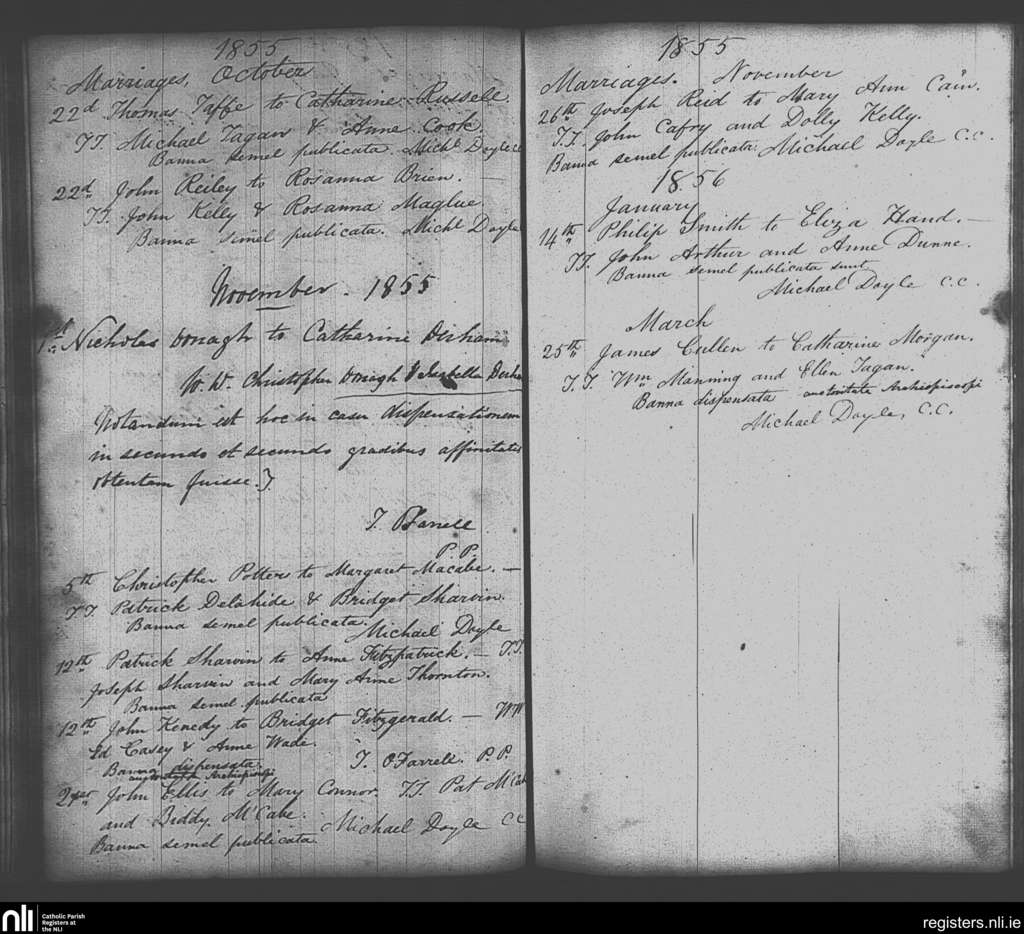 1855
Marriages, October
22d Thomas Taffe to Catharine Russell.
TT. Michael Fagan & Anne Cook.
Banna semel publicata. Michl Doyle
22d John Reiley to Rosanna Brien. —
TT. John Kelly & Rosanna Maglue.
Banna semel publicata. Michl Doyle
November. 1855
1st Nicholas Donagh to Catharine Derham
W.W. Christopher Donagh & Isabella
Notandum est hoc in casu dispensationem
in secundo et secundo gradibus affinitatis
obtentam fuisse.
P.P.
5th Christopher Potters to Margaret Macabe. —
TT Patrick Delahide & Bridget Sharvin.
Banna semel publicata. Michael Doyle
12th Patrick Sharvin to Anne Fitzpatrick. — T.T.
Joseph Sharvin and Mary Anne Thornton.
Banna semel publicata
12th John Kenedy to Bridget Fitzgerald. — WW
Ed Casey & Anne Wade.
Banna dispensata. T. O'Farrell. P.P.
John Ellis to Mary Connor. T.T. Pat
and Biddy McCabe. Michael Doyle CC
Banna semel publicata.
1855
Marriages. November
26th Joseph Reid to Mary Ann Cain.
T.T. John Cafry and Dolly Kelly.
Banna semel publicata. Michael Doyle C.C.
1856
January
14th Philip Smith to Eliza Hand. —
TT. John Arthur and Anne Dunne.
Banna semel publicata sunt
Michael Doyle C.C.
March
25th James Cullen to Catharine Morgan.
T.T Wm Manning and Ellen Fagan.
Banna dispensata auctoritate Archiepiscopi
Michael Doyle, C.C.
nli Catholic Parish
Registers at
the NLI
registers.nli.ie